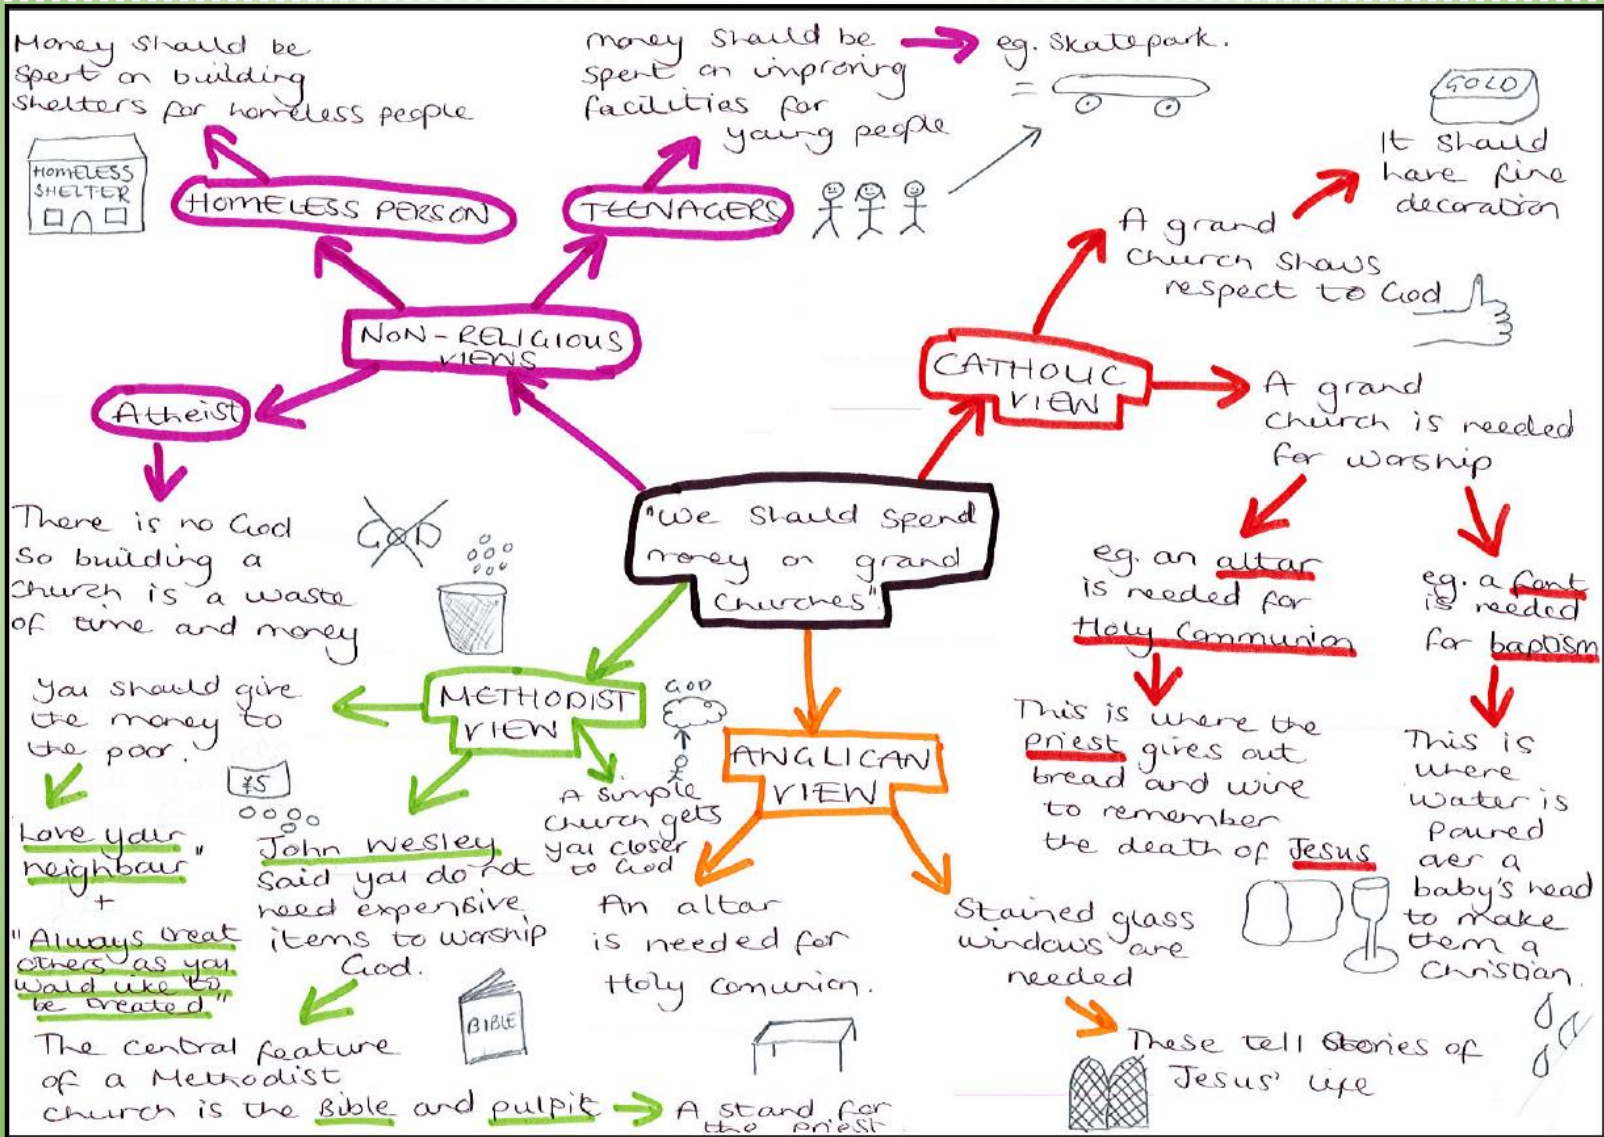 Money should be
spent on building
shelters for homeless people
HOMELESS
SHELTER
HOMELESS PERSON
money should be
spent on improving
facilities for
young people
eg. skatepark.
=
TEENAGERS
NON-RELIGIOUS
VIEWS
Atheist
There is no God
so building a
church is a waste
of time and money
GOD
"We should spend
money on grand
churches"
CATHOLIC
VIEW
A grand
church shows
respect to God
GOLD
It should
have fine
decoration
A grand
church is needed
for worship
eg. an altar
is needed for
Holy Communion
This is where the
priest gives out
bread and wine
to remember
the death of Jesus
eg. a font
is needed
for baptism
This is
where
water is
poured
over a
baby's head
to make
them a
Christian.
METHODIST
VIEW
You should give
the money to
the poor.
¥5
Love your
neighbour"
+
"Always treat
others as you
would like to
be treated"
John Wesley
said you do not
need expensive
items to worship
God.
The central feature
of a Methodist
church is the Bible and pulpit
A stand for
the priest.
BIBLE
GOD
A simple
church gets
you closer
to God
ANGLICAN
VIEW
An altar
is needed for
Holy Comunion.
Stained glass
windows are
needed
These tell stories of
Jesus' life